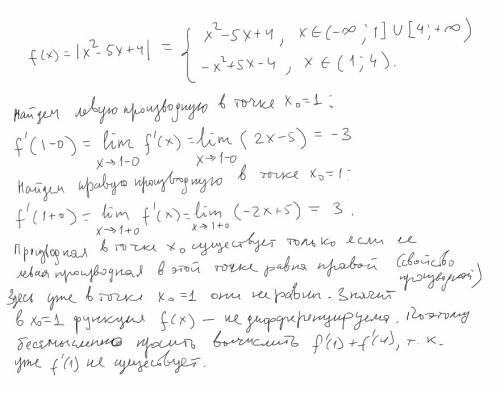 f(x) = |x²-5x+4| = { x²-5x+4, x∈(-∞;1]∪[4;+∞)
-x²+5x-4, x∈(1;4).
Найдем левую производную в точке x₀=1:
f'(1-0) = lim f'(x) = lim (2x-5) = -3
x→1-0 x→1-0
Найдем правую производную в точке x₀=1:
f'(1+0) = lim f'(x) = lim (-2x+5) = 3.
x→1+0 x→1+0
Производная в точке x₀ существует только если ее
левая производная в этой точке равна правой (свойство
производной)
Здесь уже в точке x₀=1 они не равны. Значит
в x₀=1 функция f(x) – не дифференцируема. Поэтому
бессмысленно просить вычислить f'(1)+f'(4), т.к.
уже f'(1) не существует.